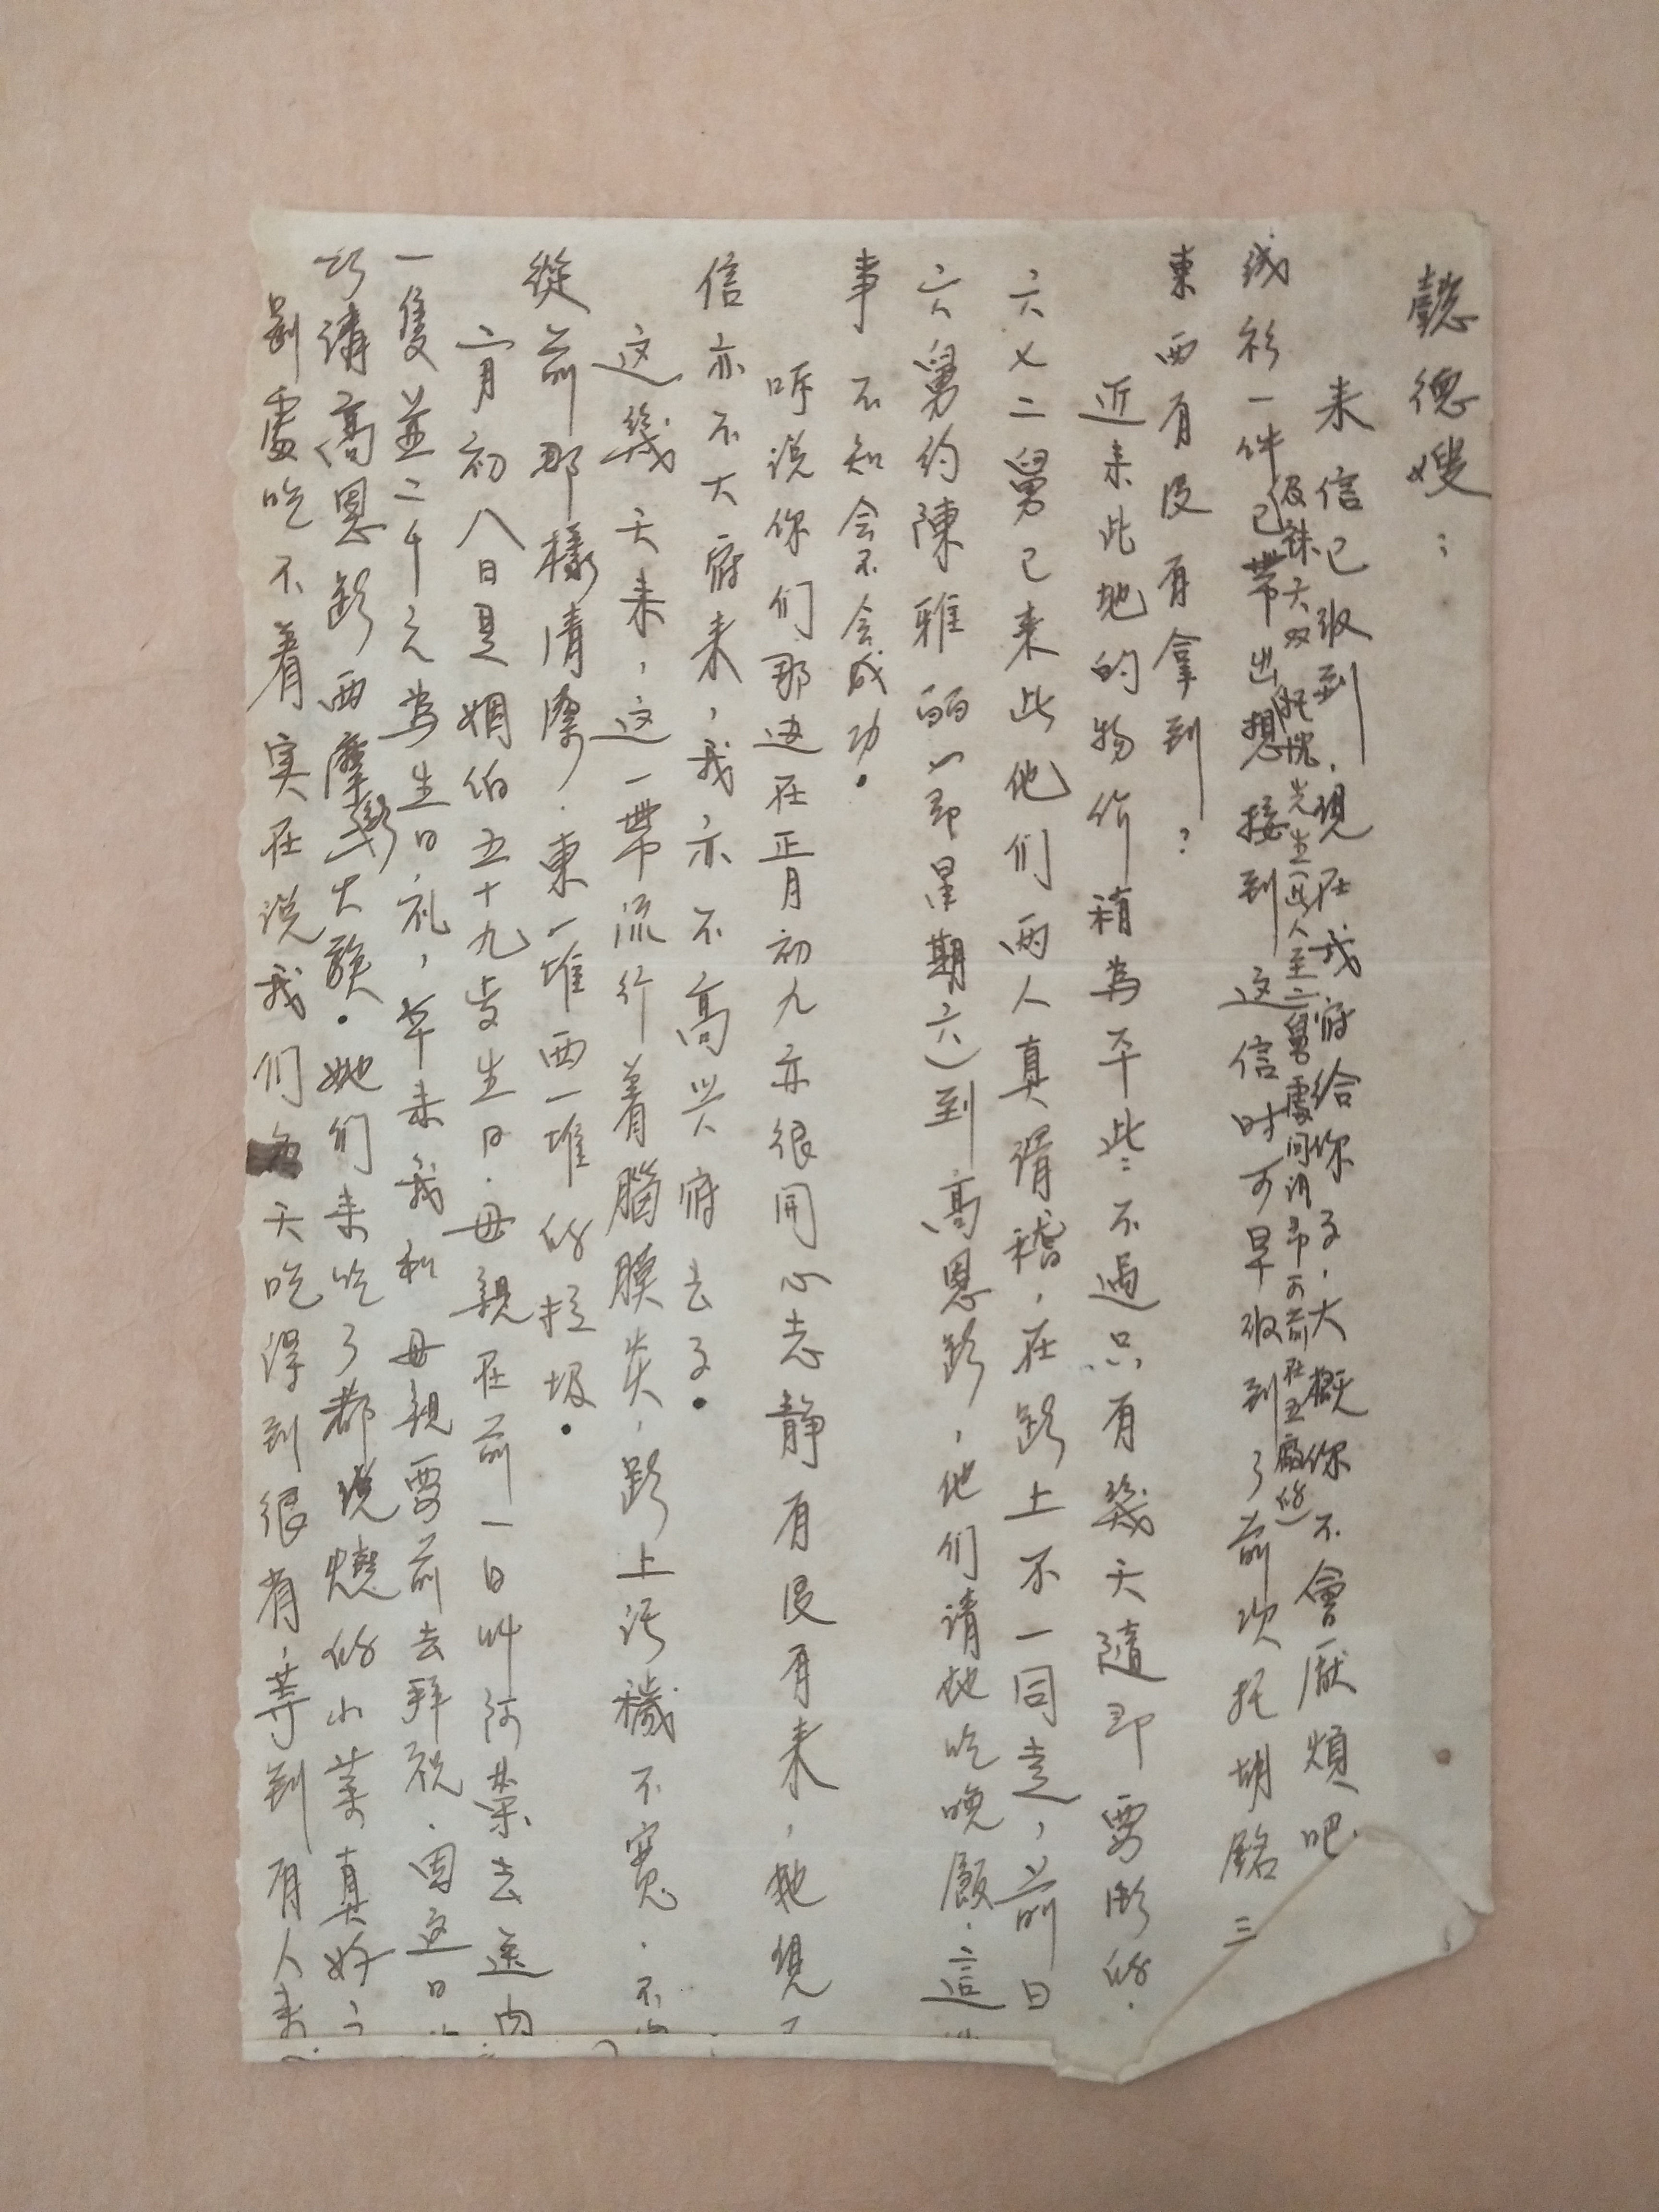 懿德嫂：
来信已收到，現在我寫给你了，大概你不會厭煩吧。
絨衫一件已帶出想接到这信时可早收到了前次托胡銘三
及袜大双 托悅先生近人至二舅處问訊 即可 在五廠的）
東西有没有拿到？
近来此地的物价稍為平些：不過只有幾天隨即要漲的．
六、七二舅已来此他们两人真滑稽，在路上不一同走，前日
六舅約陳雅丽（即星期六）到高恩路，他们请她吃晚顧．這
事不知会不会成功．
听说你们那边在正月初九亦很開心志静有没有来，她現
信亦不大寫来，我亦不高兴寫去了．
这幾天来，这一帶流行着腦膜炎，路上污穢不寬．不
從前那樣清潔，東一堆西一堆的垃圾．
二月初八日是姻伯五十九歲生日．母親在前一日叫阿荣去送肉
一隻並二千元為生日礼，本来我和母親要前去拜祝．因这日
巧請高恩路西摩路大嫂．她们来吃了都说燒的小菜真好
别處吃不着实在说我们天吃得到很有，等到有人来